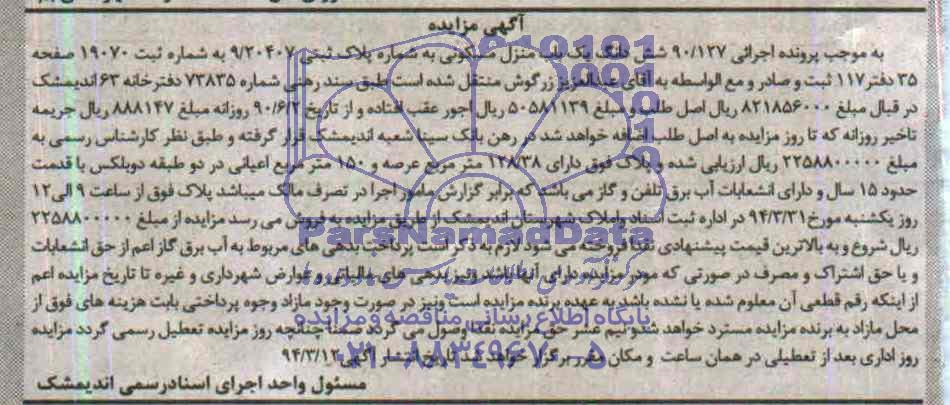 آگهی مزایده
به موجب پرونده اجرائی ۹۰/۱۲۷ شش دانگ یک باب منزل مسکونی به شماره پلاک ثبتی ۹/۲۰۴۰۷ به شماره ثبت ۱۹۰۷۰ صفحه
۳۵ دفتر ۱۱۷ ثبت و صادر و مع الواسطه به آقای عبدالعزیز زرگوش منتقل شده است طبق سند رهنی شماره ۷۳۸۳۵ دفترخانه ۶۳ اندیمشک
در قبال مبلغ ۸۲۱۸۵۶۰۰۰ ریال اصل طلب و مبلغ ۵۰۵۸۱۱۳۹ ریال اجور عقب افتاده و از تاریخ ۹۰/۶/۲ روزانه مبلغ ۸۸۸۱۴۷ ریال جریمه
تاخیر روزانه که تا روز مزایده به اصل طلب اضافه خواهد شد در رهن بانک سینا شعبه اندیمشک قرار گرفته و طبق نظر کارشناس رسمی به
مبلغ ۲۲۵۸۸۰۰۰۰۰ ریال ارزیابی شده و پلاک فوق دارای ۱۲۸/۳۸ متر مربع عرصه و ۱۵۰ متر مربع اعیانی در دو طبقه دوبلکس با قدمت
حدود ۱۵ سال و دارای انشعابات آب برق تلفن و گاز می باشد که برابر گزارش مامور اجرا در تصرف مالک میباشد پلاک فوق از ساعت ۹ الی ۱۲
روز یکشنبه مورخ ۹۴/۳/۳۱ در اداره ثبت اسناد و املاک شهرستان اندیمشک از طریق مزایده به فروش می رسد مزایده از مبلغ ۲۲۵۸۸۰۰۰۰۰
ریال شروع و به بالاترین قیمت پیشنهادی نقدا فروخته می شود لازم به ذکر است پرداخت بدهی های مربوط به آب برق گاز اعم از حق انشعابات
و یا حق اشتراک و مصرف در صورتی که مورد مزایده دارای آنها باشد و نیز بدهی های مالیاتی و عوارض شهرداری و غیره تا تاریخ مزایده اعم
از اینکه رقم قطعی آن معلوم شده یا نشده باشد به عهده برنده مزایده است ونیز در صورت وجود مازاد وجوه پرداختی بابت هزینه های فوق از
محل مازاد به برنده مزایده مسترد خواهد شد و نیم عشر حق مزایده نقدا وصول می گردد ضمنا چنانچه روز مزایده تعطیل رسمی گردد مزایده
روز اداری بعد از تعطیلی در همان ساعت و مکان مقرر برگزار خواهد شد تاریخ انتشار آگهی ۹۴/۳/۱۲
مسئول واحد اجرای اسناد رسمی اندیمشک
ParsNamadData
پایگاه اطلاع رسانی مناقصه و مزایده
۰۲۱-۸۸۳۴۹۶۷۰-۵